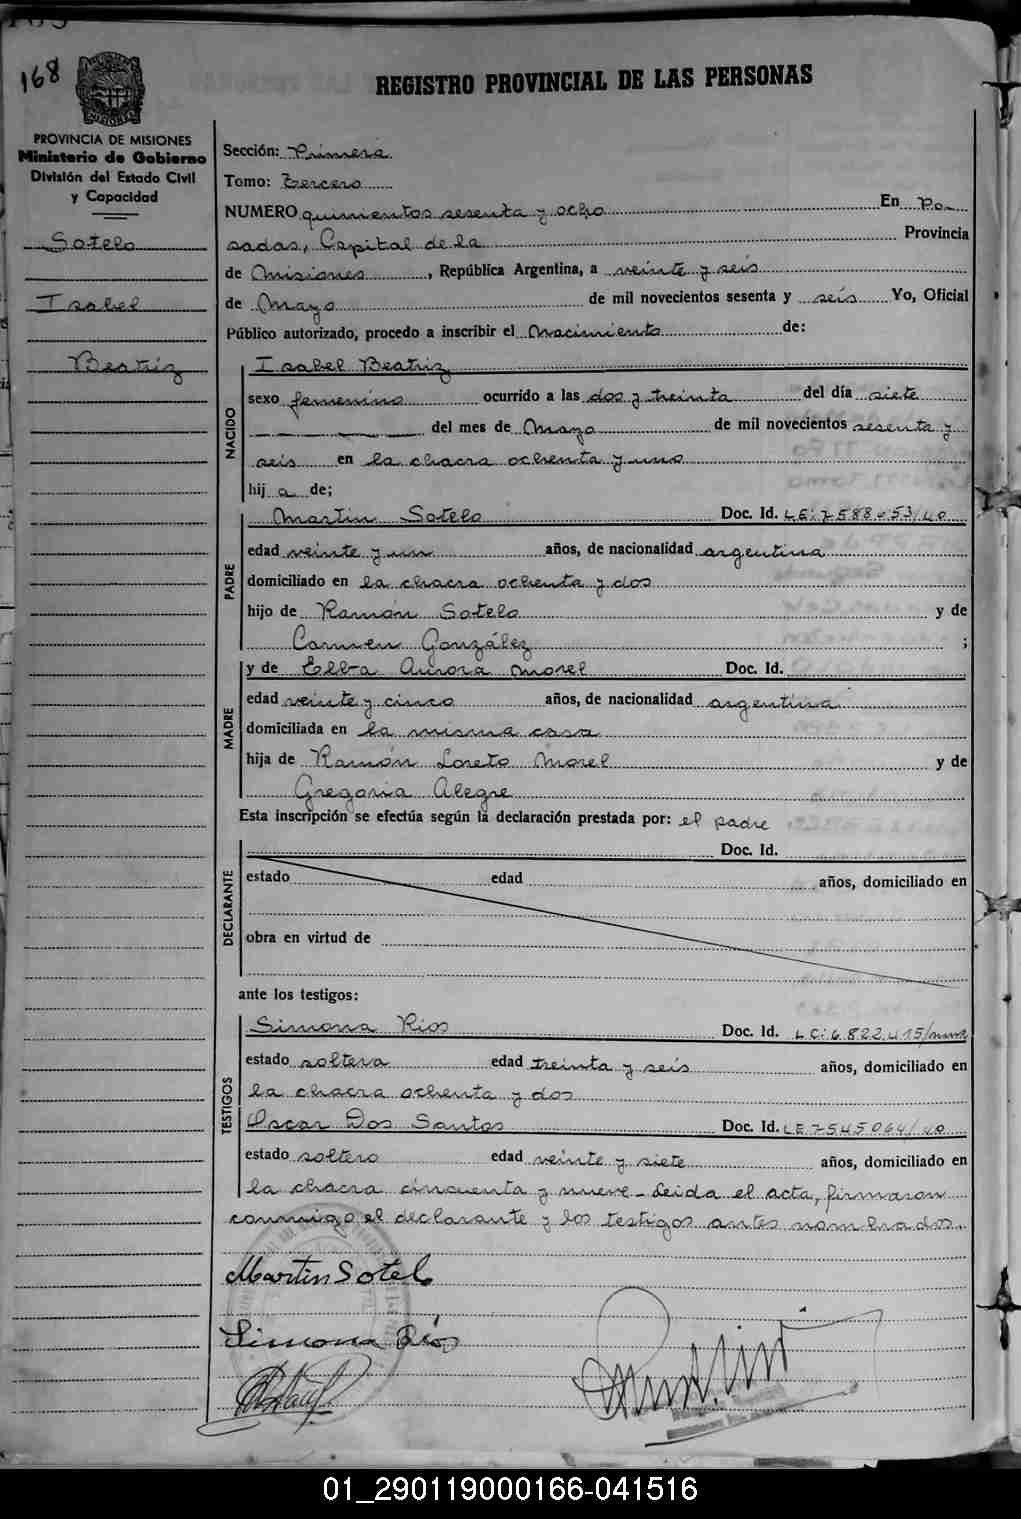 168
REGISTRO PROVINCIAL DE LAS PERSONAS
PROVINCIA DE MISIONES
Ministerio de Gobierno
División del Estado Civil
y Capacidad
Sotelo
Isabel
Beatriz
Sección: Primera
Tomo: Tercero
NUMERO quinientos sesenta y ocho En Po-
sadas, Capital de la Provincia
de Misiones, República Argentina, a veinte y seis
de Mayo de mil novecientos sesenta y seis Yo, Oficial
Público autorizado, procedo a inscribir el Nacimiento de:
NACIDO
Isabel Beatriz
sexo femenino ocurrido a las dos y treinta del día siete
del mes de Mayo de mil novecientos sesenta y
seis en la chacra ochenta y uno
hij a de;
PADRE
Martin Sotelo Doc. Id. LE:7588053/40
edad veinte y un años, de nacionalidad argentina
domiciliado en la chacra ochenta y dos
hijo de Ramón Sotelo y de
Carmen González ;
MADRE
y de Elba Aurora Morel Doc. Id.
edad veinte y cinco años, de nacionalidad argentina
domiciliada en la misma casa
hija de Ramón Loreto Morel y de
Gregoria Alegre
Esta inscripción se efectúa según la declaración prestada por: el padre
DECLARANTE
Doc. Id.
estado edad años, domiciliado en
obra en virtud de
ante los testigos:
TESTIGOS
Simona Rios Doc. Id. LC:6.822.415/
estado soltera edad treinta y seis años, domiciliado en
la chacra ochenta y dos
Oscar Dos Santos Doc. Id. LE 7545064/40
estado soltero edad veinte y siete años, domiciliado en
la chacra cincuenta y nueve - Leida el acta, firmaron
conmigo el declarante y los testigos antes nombrados.
Martin Sotelo
Simona Ríos
01_290119000166-041516